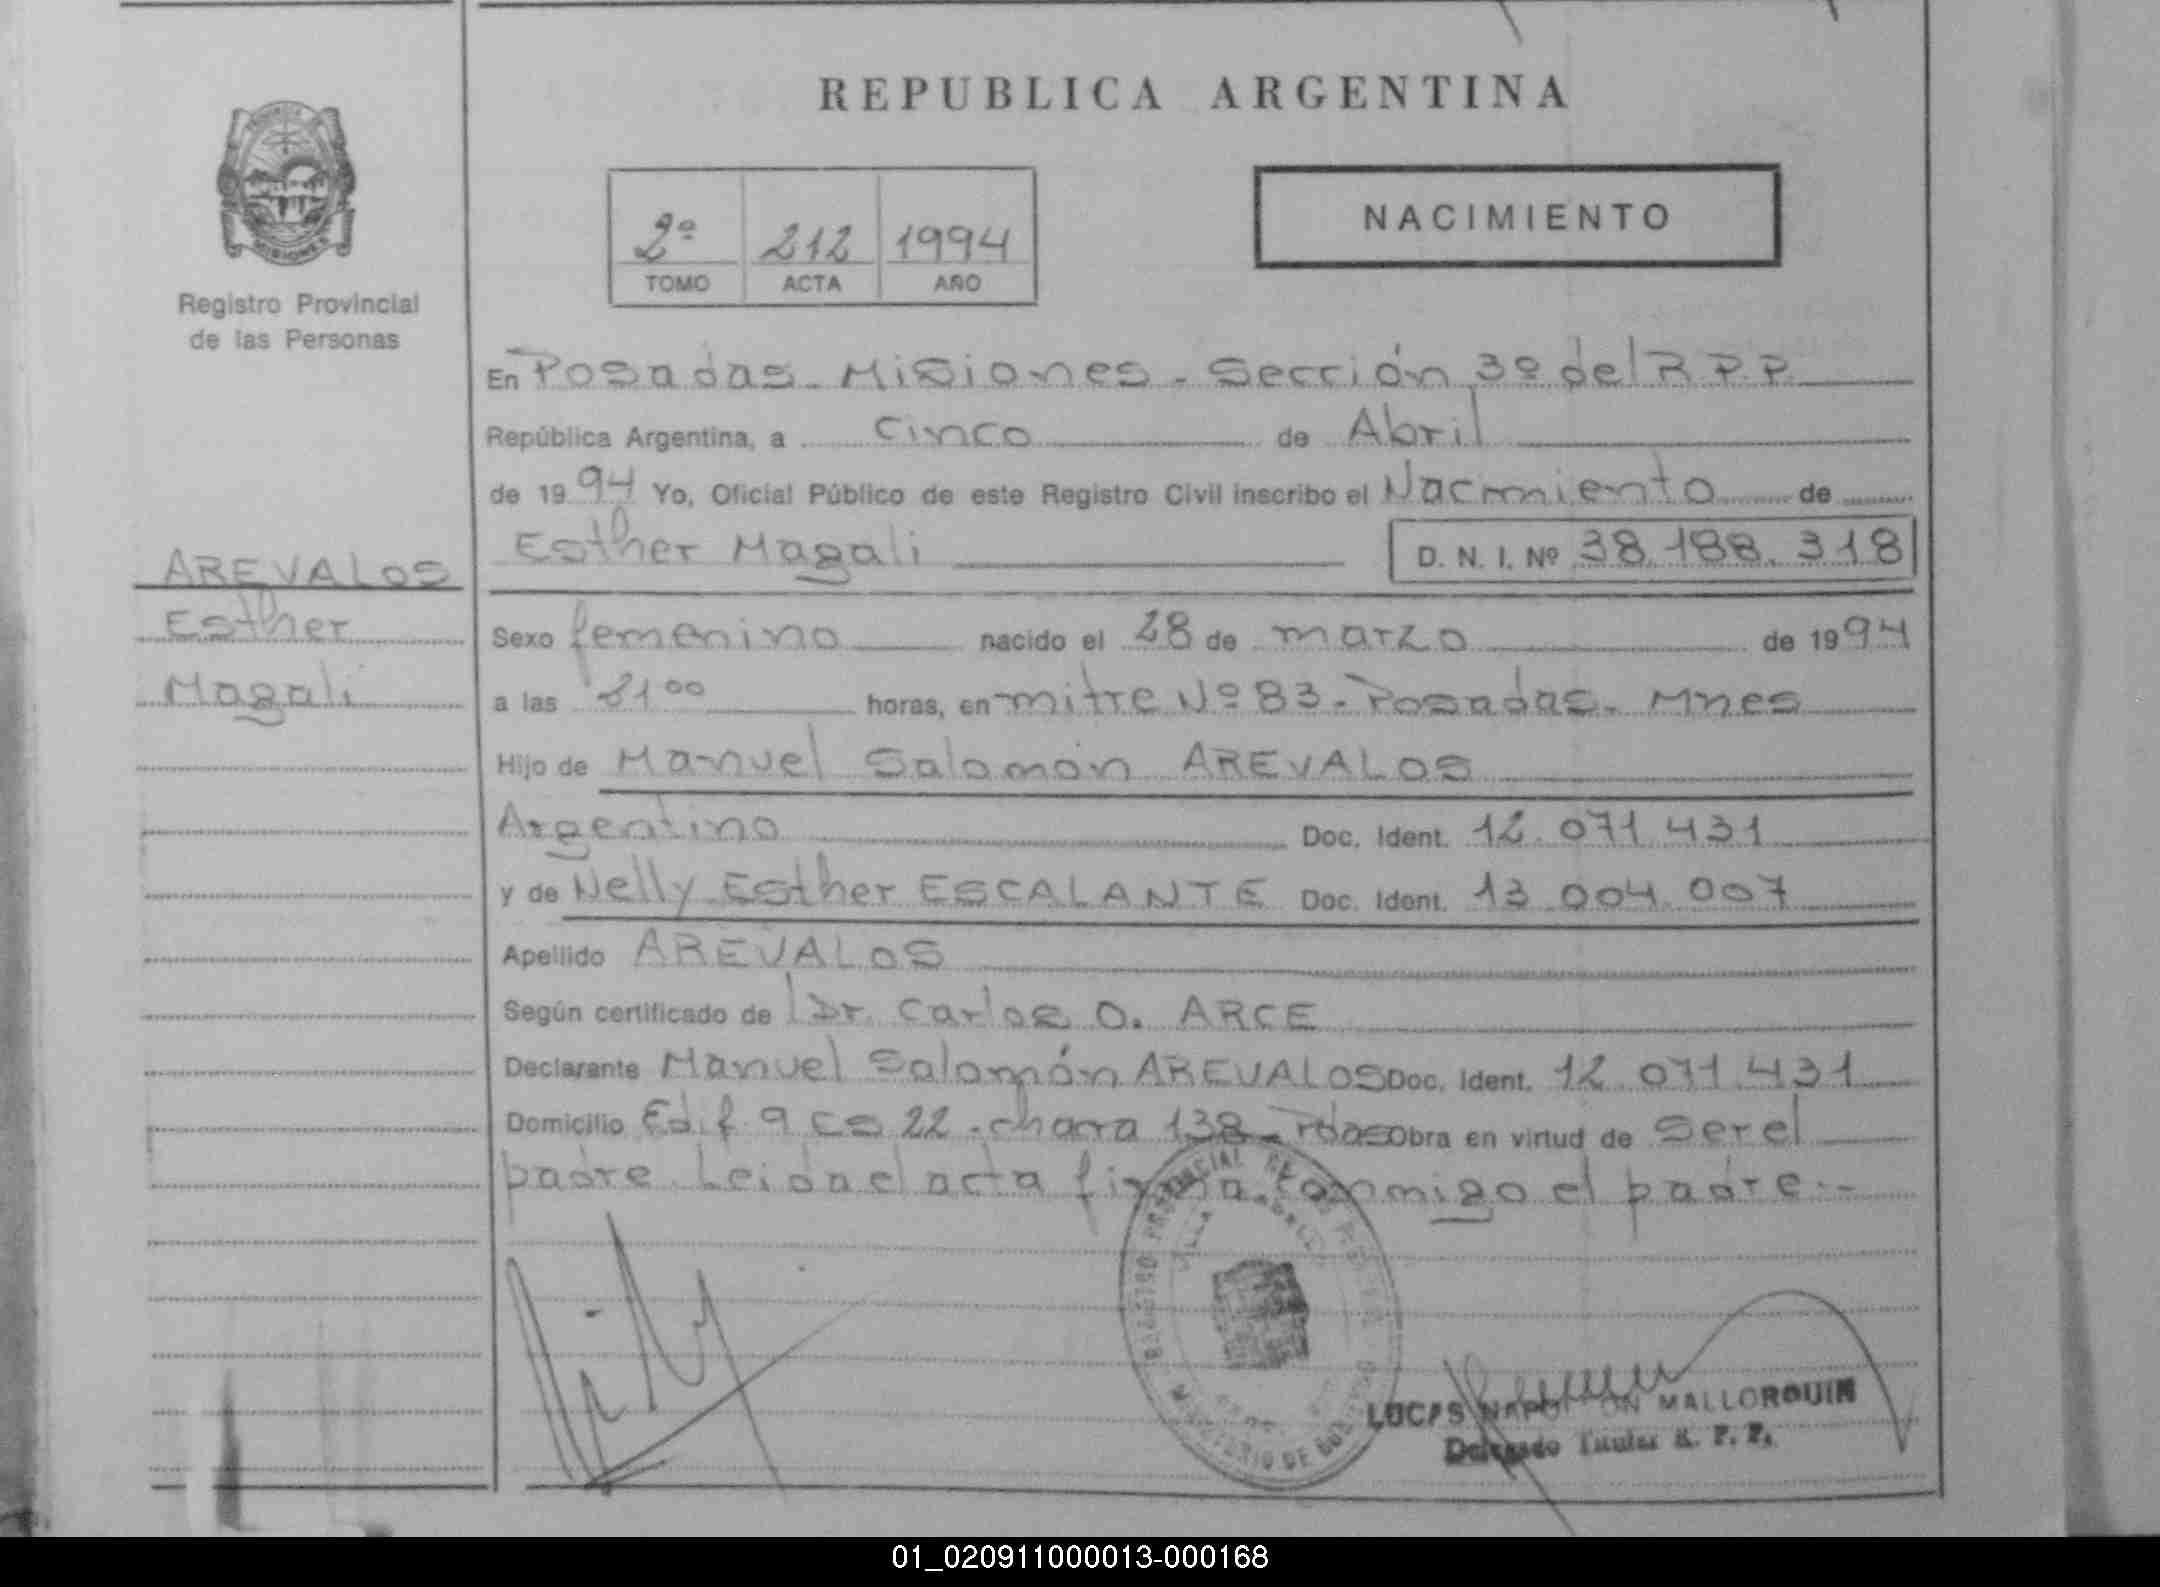 REPUBLICA ARGENTINA
2º 212 1994
TOMO ACTA AÑO
NACIMIENTO
MISIONES
Registro Provincial
de las Personas
AREVALOS
Esther
Magali
En Posadas - Misiones - Sección 3º del R.P.P.
República Argentina, a cinco de Abril
de 1994 Yo, Oficial Público de este Registro Civil inscribo el Nacimiento de
Esther Magali D. N. I. Nº 38.188.318
Sexo femenino nacido el 28 de marzo de 1994
a las 21⁰⁰ horas, en mitre Nº 83 - Posadas - Mnes
Hijo de Manuel Salomón AREVALOS
Argentino Doc. Ident. 12.071.431
y de Nelly Esther ESCALANTE Doc. Ident. 13.004.007
Apellido AREVALOS
Según certificado de Dr. Carlos O. ARCE
Declarante Manuel Salomón AREVALOS Doc. Ident. 12.071.431
Domicilio Edif. 9 Cs 22 - chacra 138 - Pdas Obra en virtud de ser el
padre. Leida el acta firma conmigo el padre.-
REGISTRO PROVINCIAL DE LAS PERSONAS
MINISTERIO DE GOBIERNO
LUCAS NAPOLEON MALLORQUIN
Delegado Titular R. P. P.
01_020911000013-000168